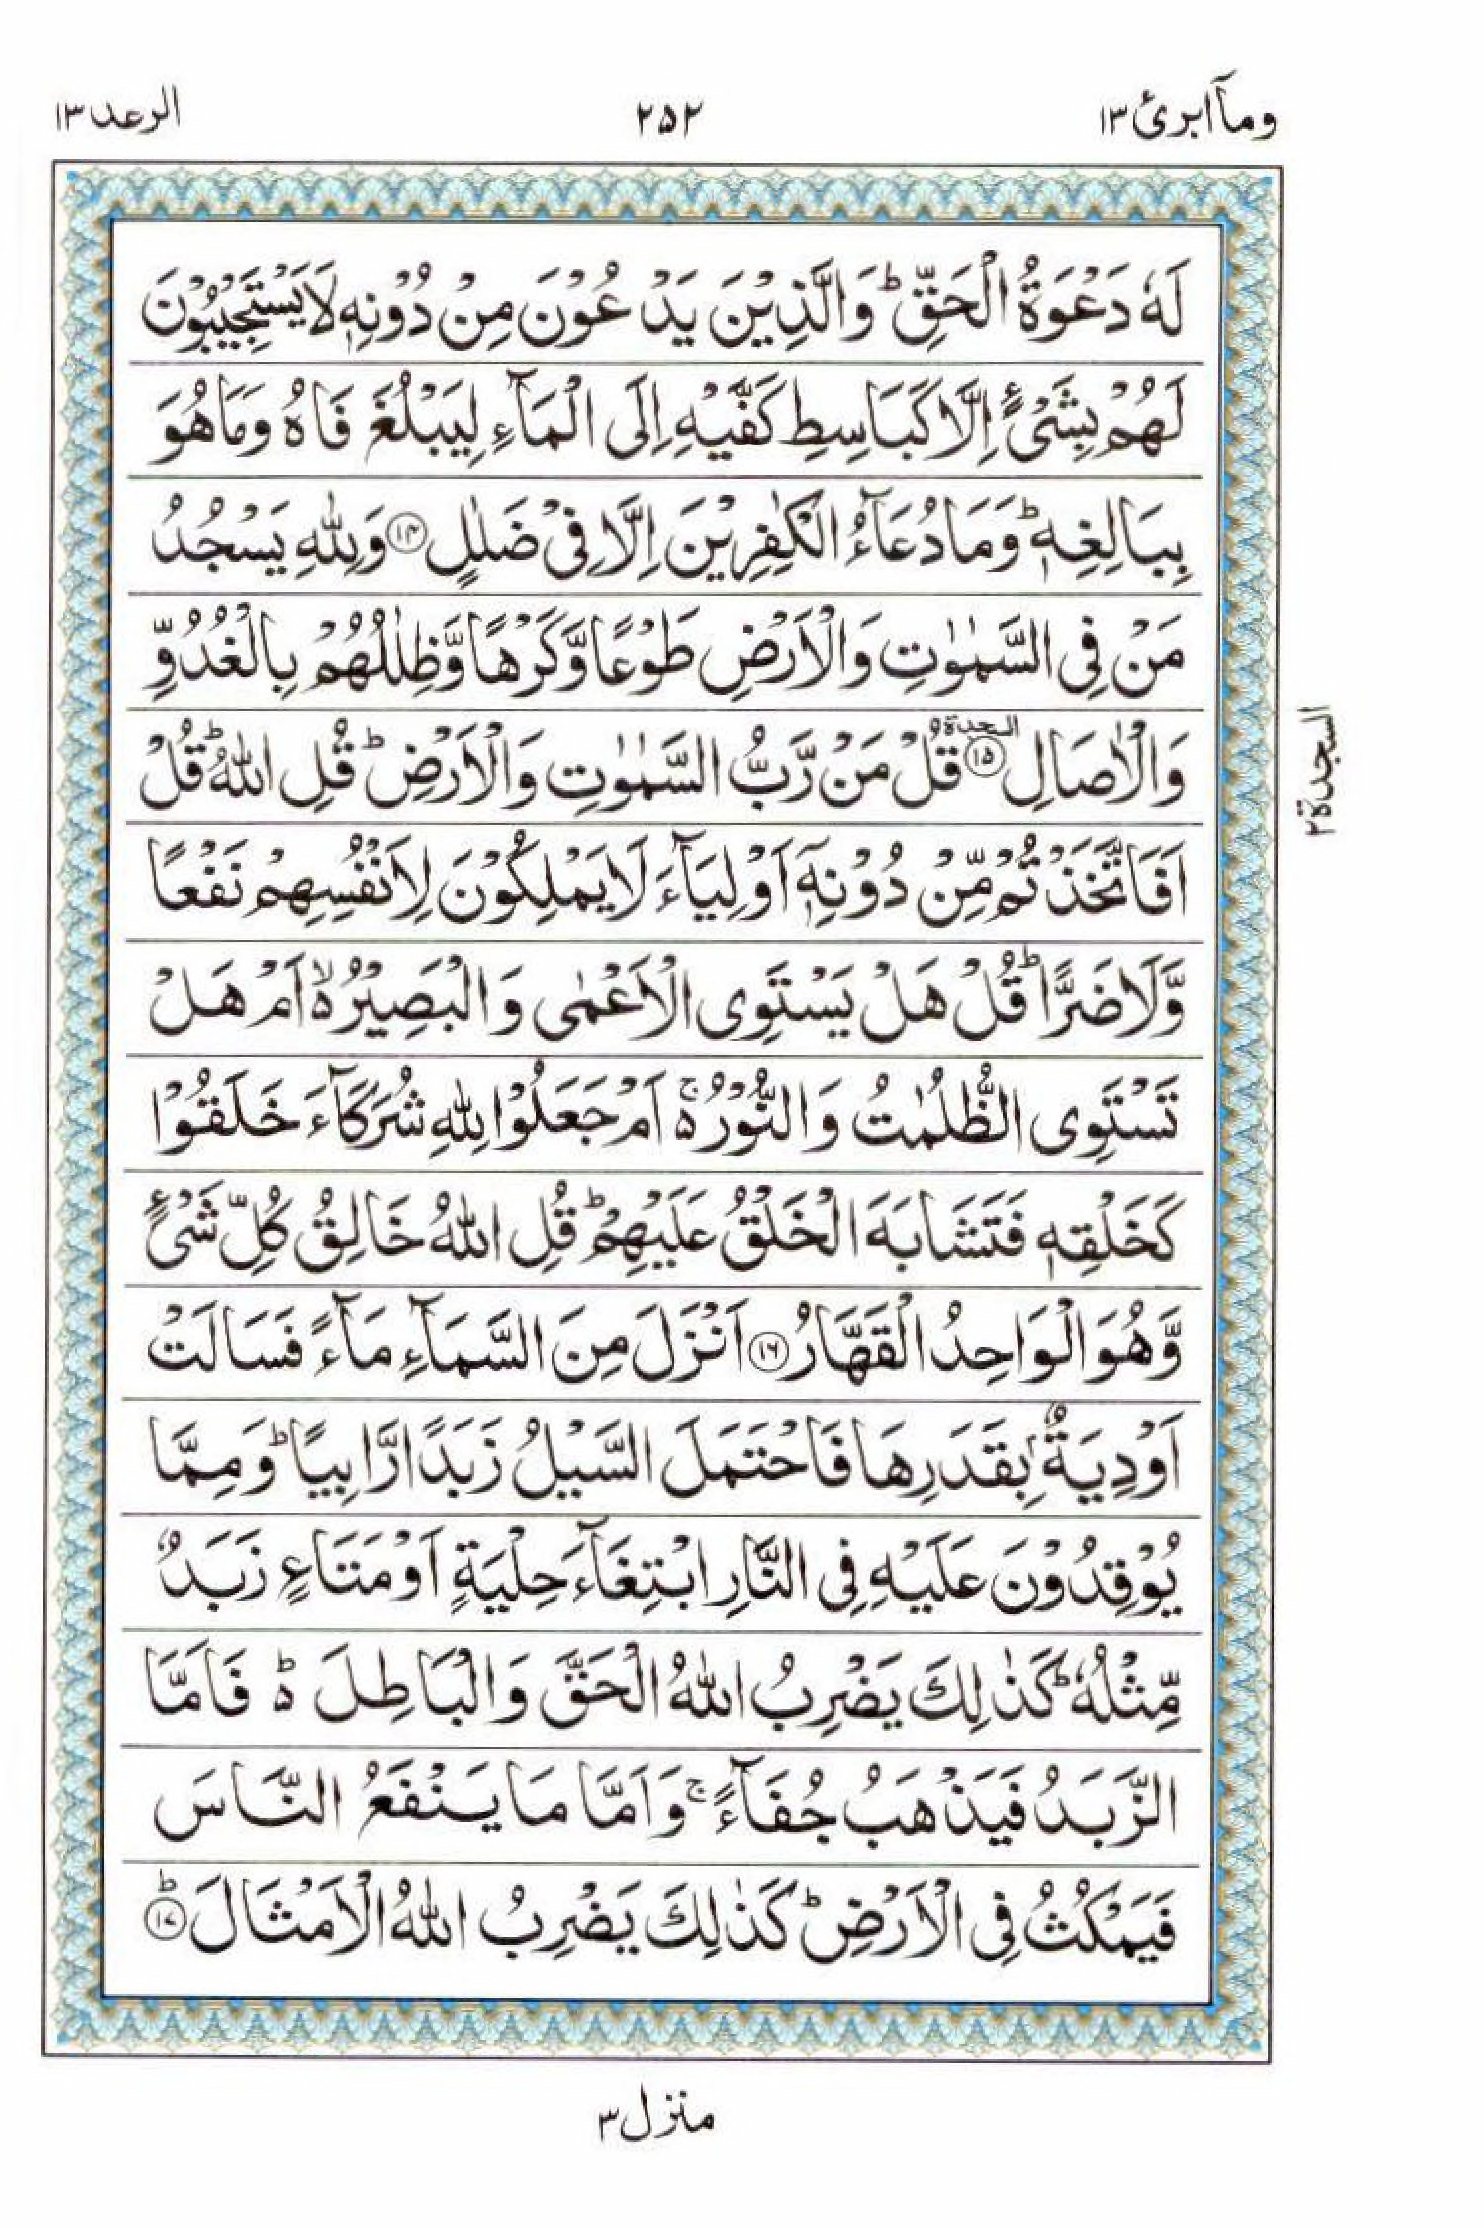 وماۤابرئ١٣ ٢٥٢ الرعد١٣
لَهٗ دَعْوَةُ الْحَقِّ ؕ وَالَّذِيْنَ يَدْعُوْنَ مِنْ دُوْنِهٖ لَا يَسْتَجِيْبُوْنَ
لَهُمْ بِشَىْءٍ اِلَّا كَبَاسِطِ كَفَّيْهِ اِلَى الْمَآءِ لِيَبْلُغَ فَاهُ وَمَا هُوَ
بِبَالِغِهٖ ؕ وَمَا دُعَآءُ الْكٰفِرِيْنَ اِلَّا فِىْ ضَلٰلٍ ۝١٤ وَلِلّٰهِ يَسْجُدُ
مَنْ فِى السَّمٰوٰتِ وَالْاَرْضِ طَوْعًا وَّكَرْهًا وَّظِلٰلُهُمْ بِالْغُدُوِّ
وَالْاٰصَالِ ۝١٥ السجدة قُلْ مَنْ رَّبُّ السَّمٰوٰتِ وَالْاَرْضِ ؕ قُلِ اللّٰهُ ؕ قُلْ
السجدة٢
اَفَاتَّخَذْتُمْ مِّنْ دُوْنِهٖۤ اَوْلِيَآءَ لَا يَمْلِكُوْنَ لِاَنْفُسِهِمْ نَفْعًا
وَّلَا ضَرًّا ؕ قُلْ هَلْ يَسْتَوِى الْاَعْمٰى وَالْبَصِيْرُ ۙ۬ اَمْ هَلْ
تَسْتَوِى الظُّلُمٰتُ وَالنُّوْرُ ۚ۬ اَمْ جَعَلُوْا لِلّٰهِ شُرَكَآءَ خَلَقُوْا
كَخَلْقِهٖ فَتَشَابَهَ الْخَلْقُ عَلَيْهِمْ ؕ قُلِ اللّٰهُ خَالِقُ كُلِّ شَىْءٍ
وَّهُوَ الْوَاحِدُ الْقَهَّارُ ۝١٦ اَنْزَلَ مِنَ السَّمَآءِ مَآءً فَسَالَتْ
اَوْدِيَةٌۢ بِقَدَرِهَا فَاحْتَمَلَ السَّيْلُ زَبَدًا رَّابِيًا ؕ وَمِمَّا
يُوْقِدُوْنَ عَلَيْهِ فِى النَّارِ ابْتِغَآءَ حِلْيَةٍ اَوْ مَتَاعٍ زَبَدٌ
مِّثْلُهٗ ؕ كَذٰلِكَ يَضْرِبُ اللّٰهُ الْحَقَّ وَالْبَاطِلَ ۬ؕ فَاَمَّا
الزَّبَدُ فَيَذْهَبُ جُفَآءً ۚ وَاَمَّا مَا يَنْفَعُ النَّاسَ
فَيَمْكُثُ فِى الْاَرْضِ ؕ كَذٰلِكَ يَضْرِبُ اللّٰهُ الْاَمْثَالَ ؕ۝١٧
منزل٣